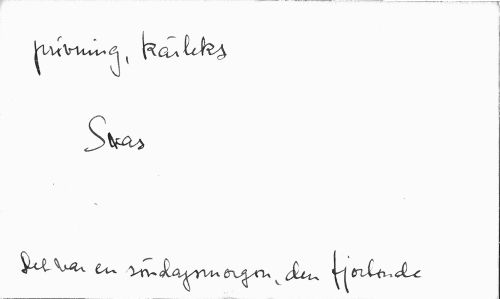 prövning, kärleks
Svas
Det var en söndagsmorgon, den fjortonde